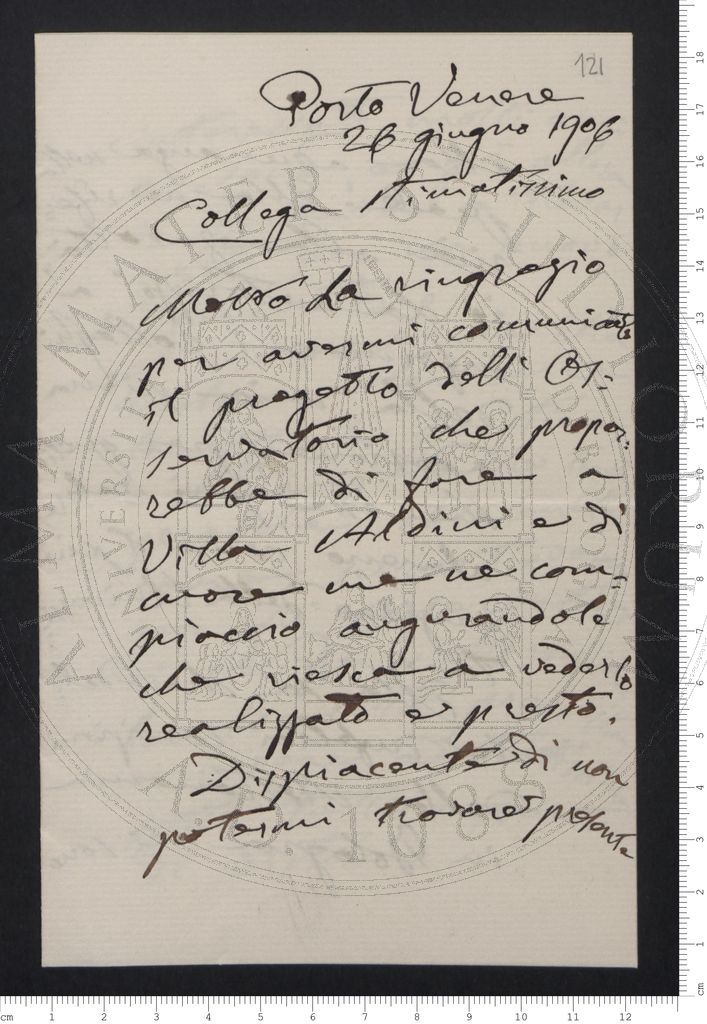 121
Porto Venere
26 giugno 1906
Collega stimatissimo
Molto La ringrazio
per avermi comunicato
il progetto dell' Os=
servatorio che propor=
rebbe di fare a
Villa Aldini e di
cuore me ne com=
piaccio augurandole
che riesca a vederlo
realizzato e presto.
Dispiacente di non
potermi trovare presente
ALMA MATER STUDIORUM
A.D. 1088